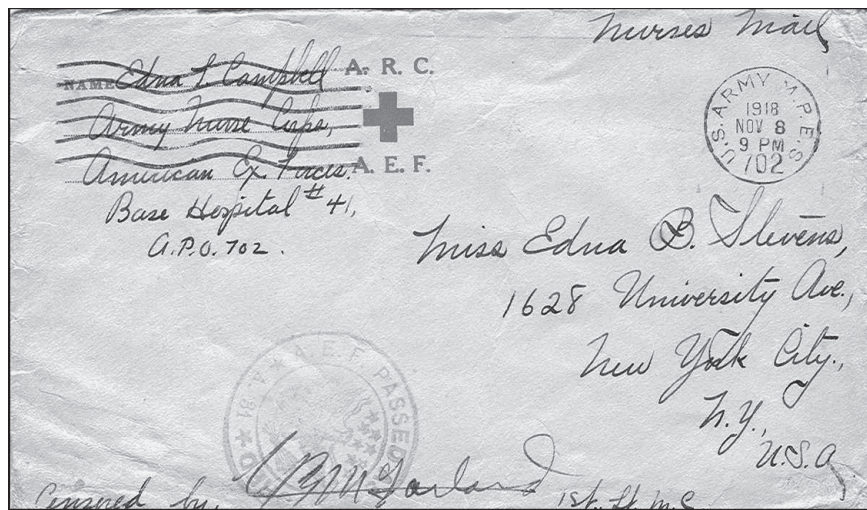 Nurses Mail
NAME Edna L Campbell
Army Nurse Corps,
American Ex. Forces,
Base Hospital #41,
A.P.O. 702.
A. R. C.
A. E. F.
U.S. ARMY M.P.E.S.
1918
NOV 8
9 PM
702
Miss Edna B. Stevens,
1628 University Ave.,
New York City.,
N.Y.,
U.S.A
A.E.F. PASSED
Censored by,
McFarland
1st. Lt. M.C.